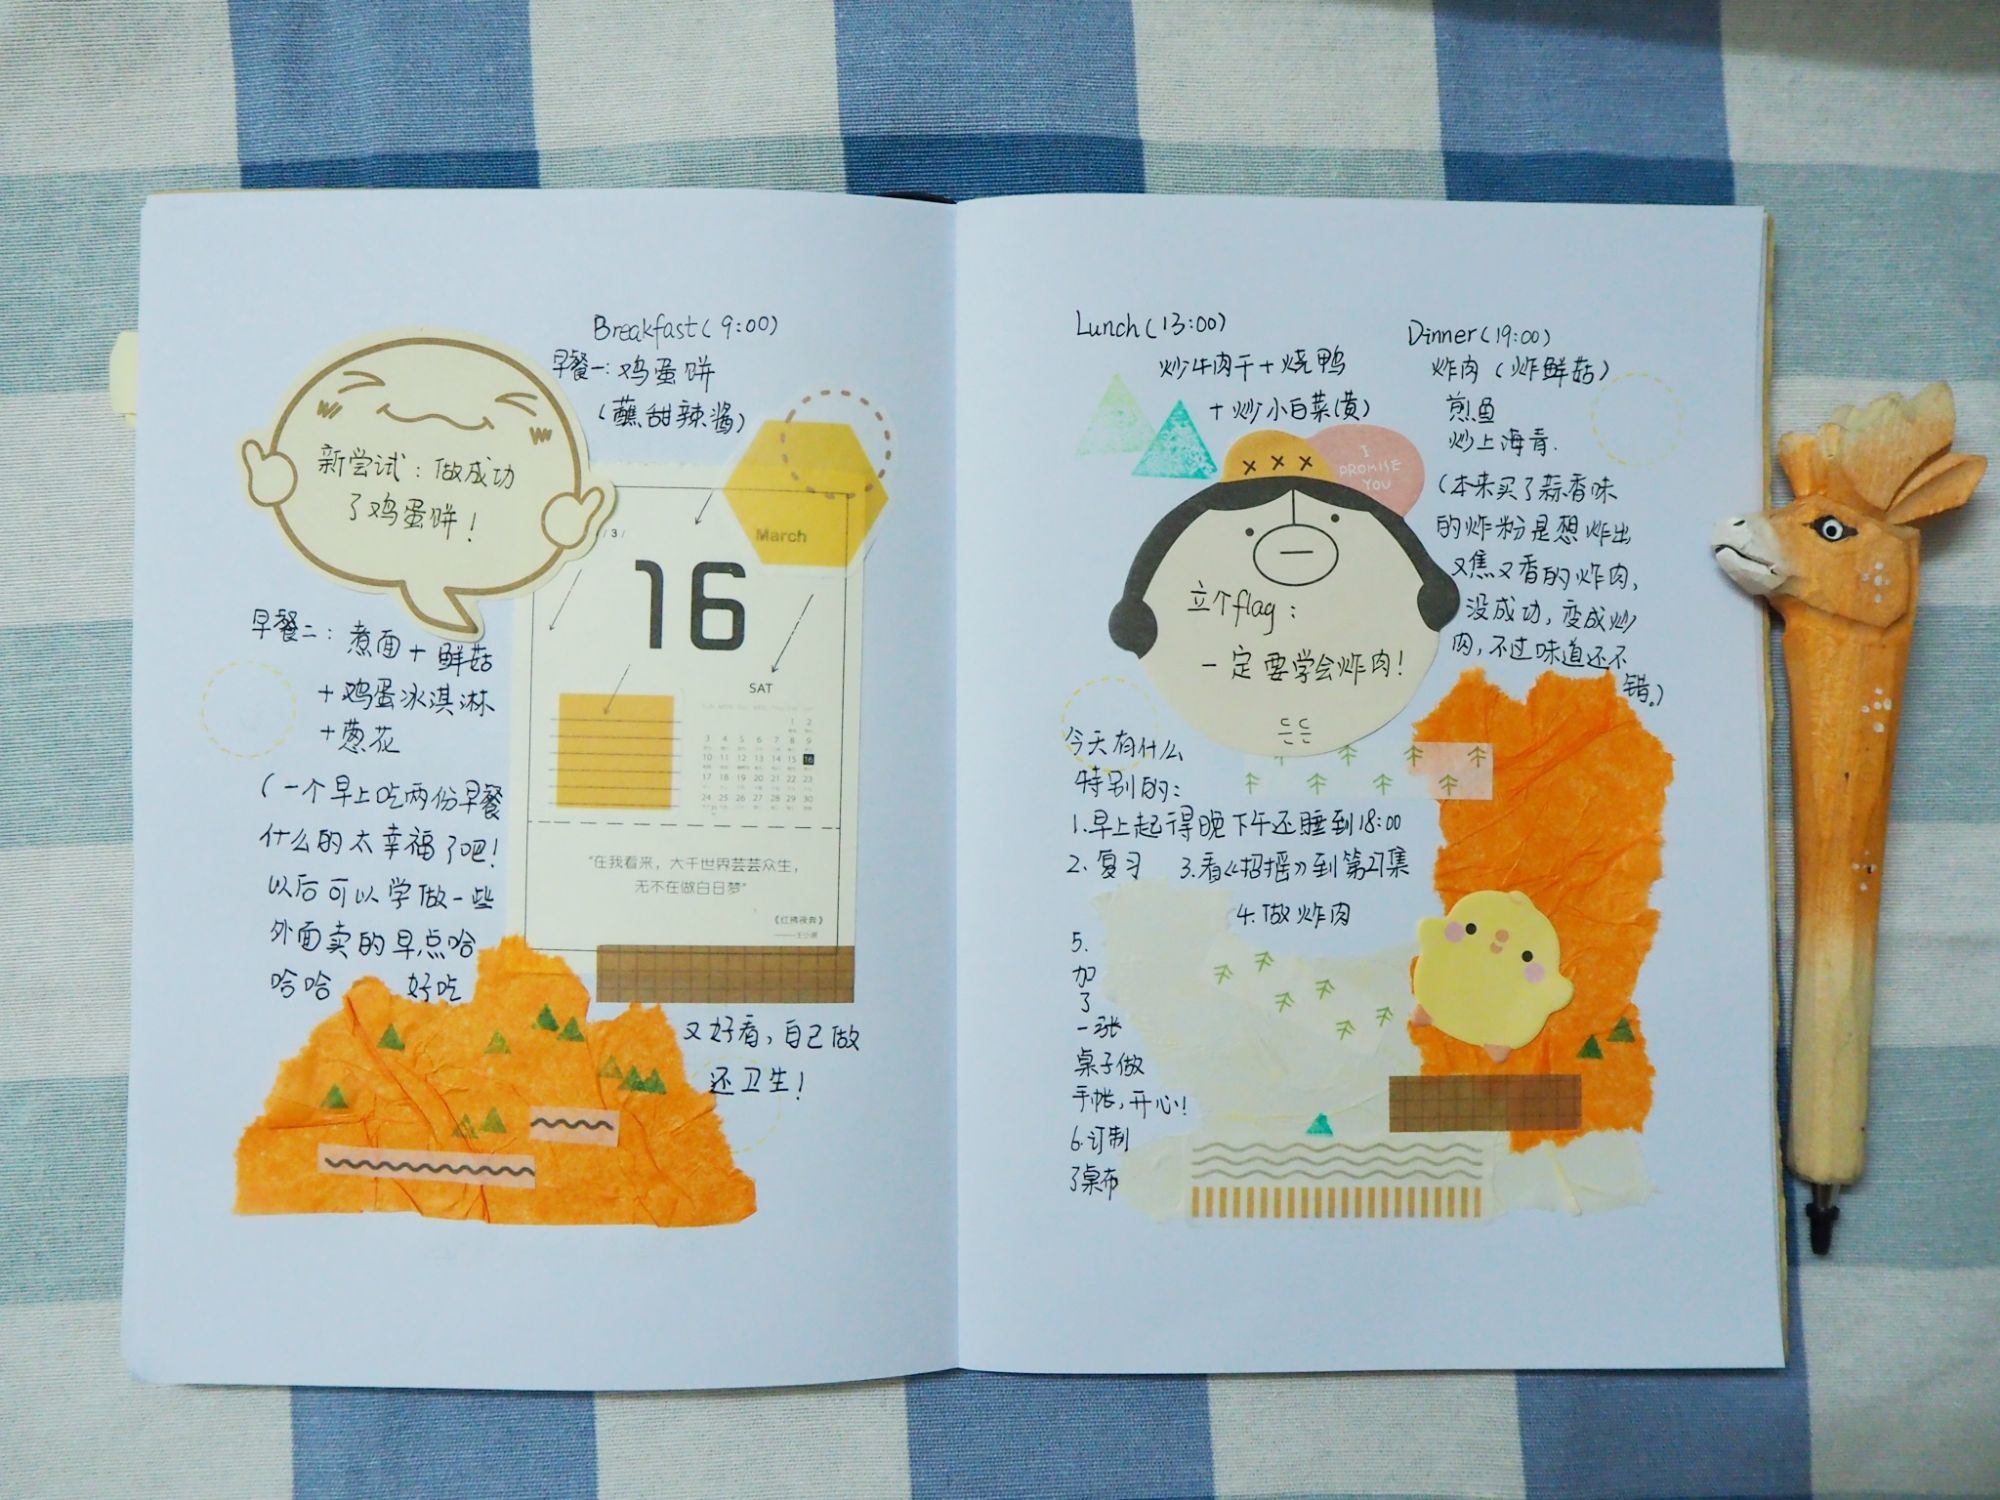 Breakfast(9:00)
早餐一:鸡蛋饼
(蘸甜辣酱)
新尝试:做成功
了鸡蛋饼!
/3/
March
16
SAT
SUN MON TUE WED THU FRI SAT
1 2
3 4 5 6 7 8 9
10 11 12 13 14 15 16
17 18 19 20 21 22 23
24 25 26 27 28 29 30
“在我看来，大千世界芸芸众生，
无不在做白日梦”
《红拂夜奔》
——王小波
早餐二:煮面+鲜菇
+鸡蛋冰淇淋
+葱花
(一个早上吃两份早餐
什么的太幸福了吧!
以后可以学做一些
外面卖的早点哈
哈哈 好吃
又好看,自己做
还卫生!
Lunch(13:00)
炒牛肉干+烧鸭
+炒小白菜(黄)
I
PROMISE
YOU
立个flag:
一定要学会炸肉!
Dinner(19:00)
炸肉(炸鲜菇)
煎鱼
炒上海青.
(本来买了蒜香味
的炸粉是想炸出
又焦又香的炸肉,
没成功,变成炒
肉,不过味道还不
错。)
今天有什么
特别的:
1.早上起得晚下午还睡到18:00
2.复习 3.看《招摇》到第27集
4.做炸肉
5.
加
了
一张
桌子做
手帐,开心!
6.订制
了桌布